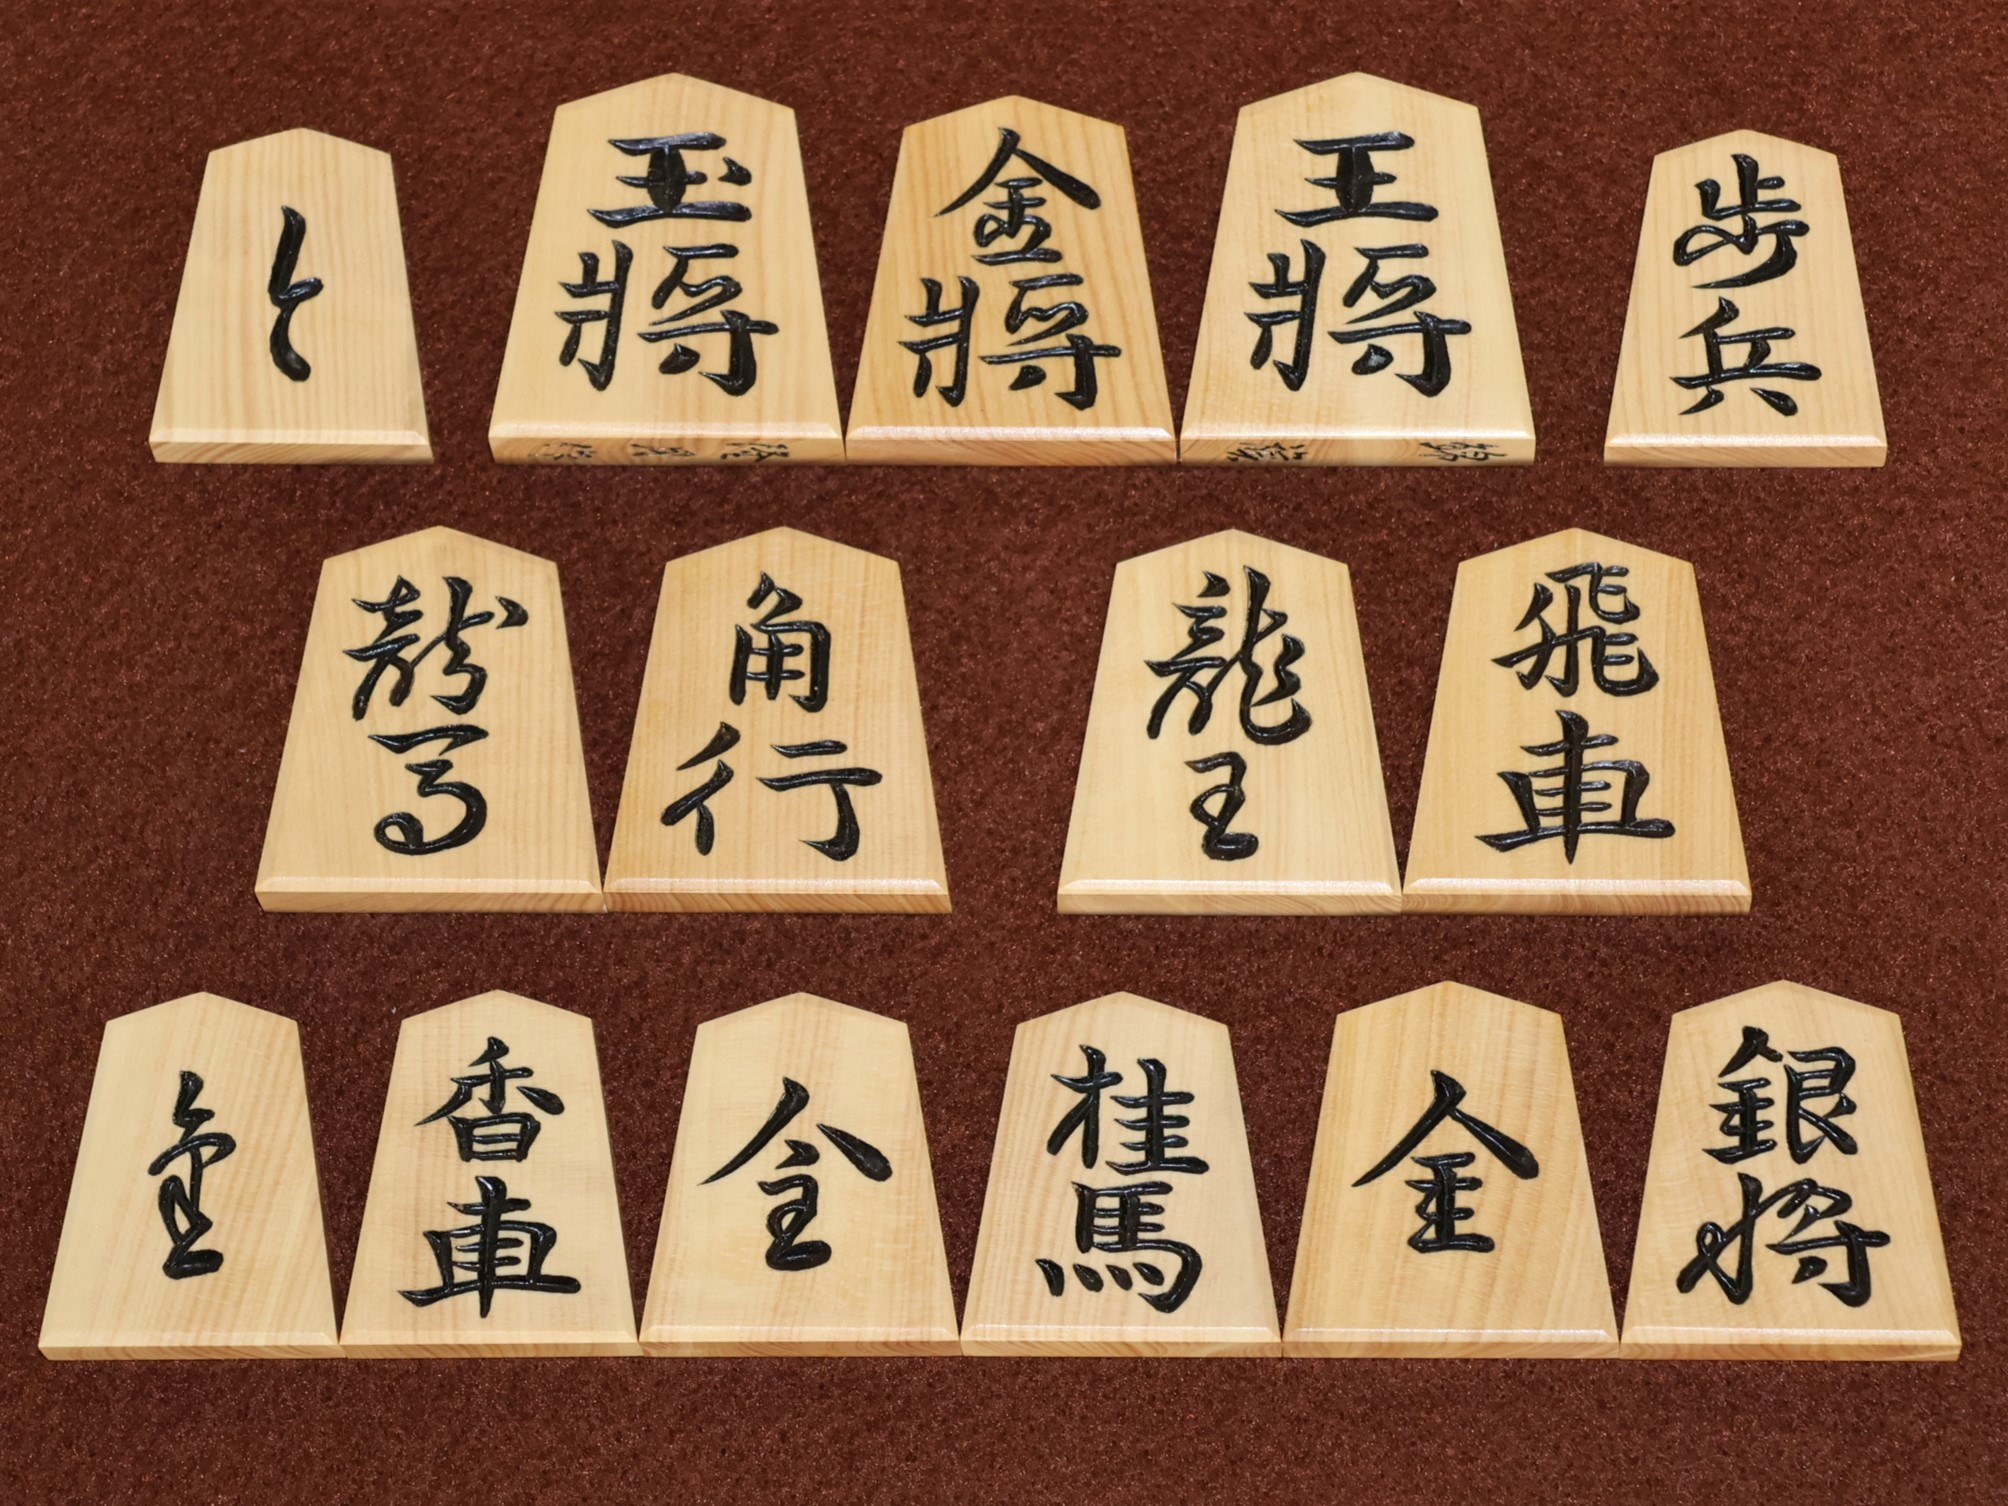 と
玉將
金將
王將
歩兵
龍馬
角行
龍王
飛車
香車
全
桂馬
金
銀将